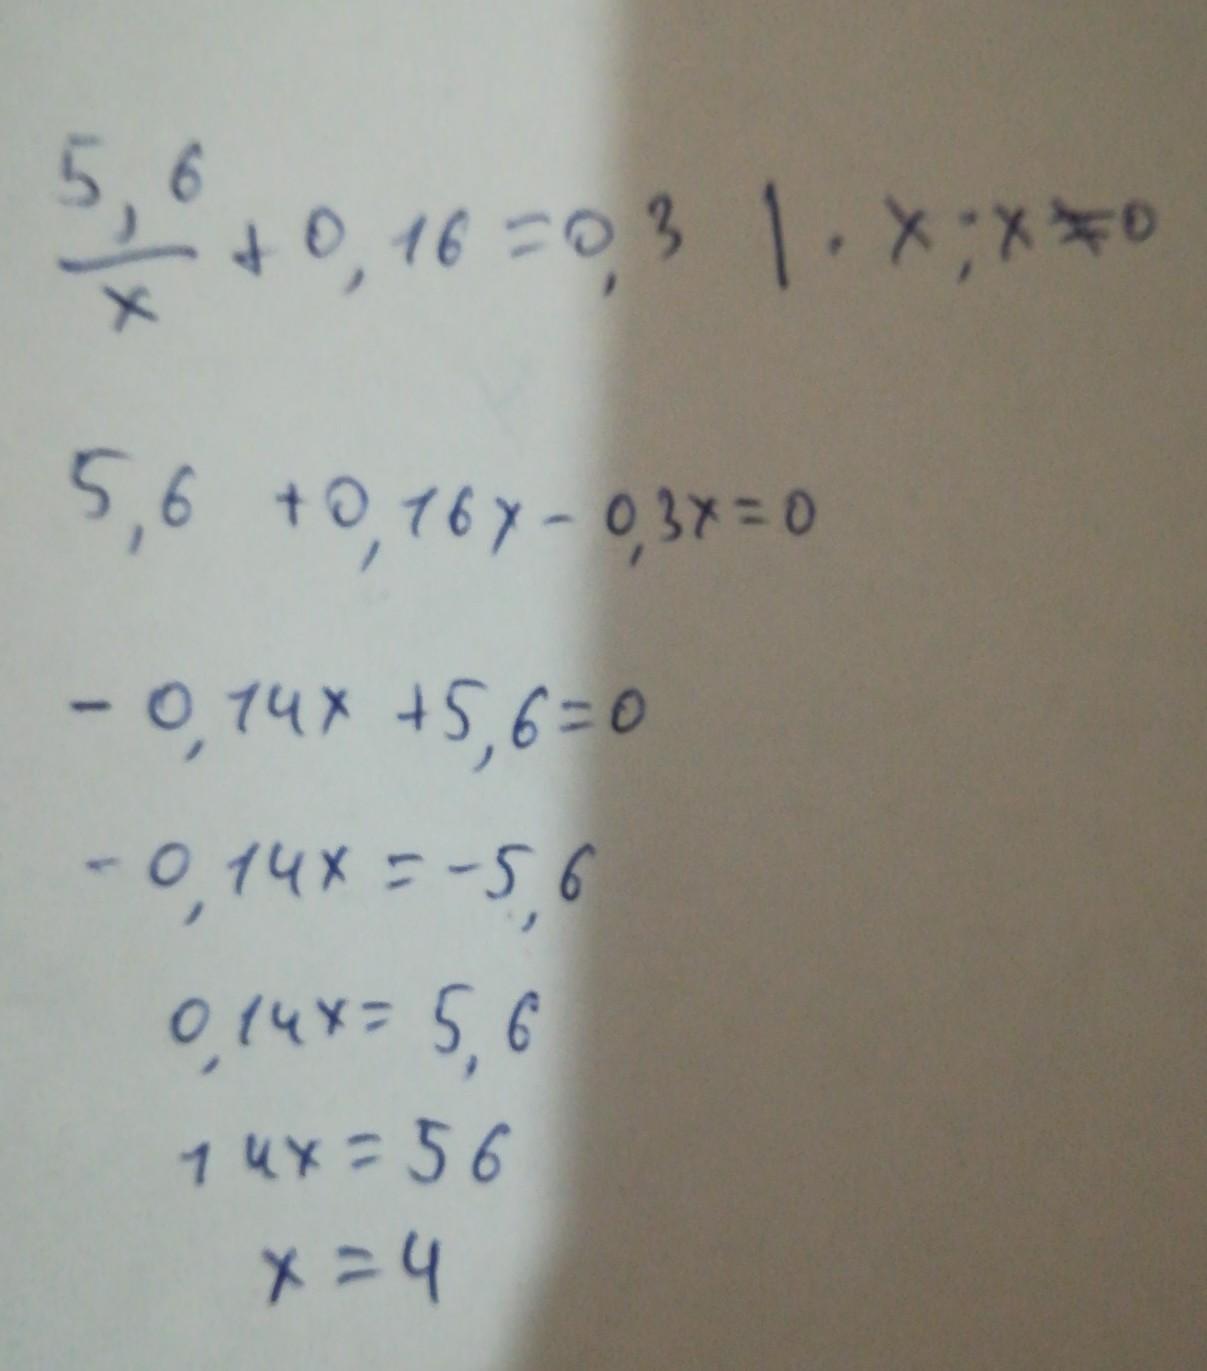 5,6/x + 0,16 = 0,3 | · x; x ≠ 0
5,6 + 0,16x - 0,3x = 0
- 0,14x + 5,6 = 0
- 0,14x = -5,6
0,14x = 5,6
14x = 56
x = 4